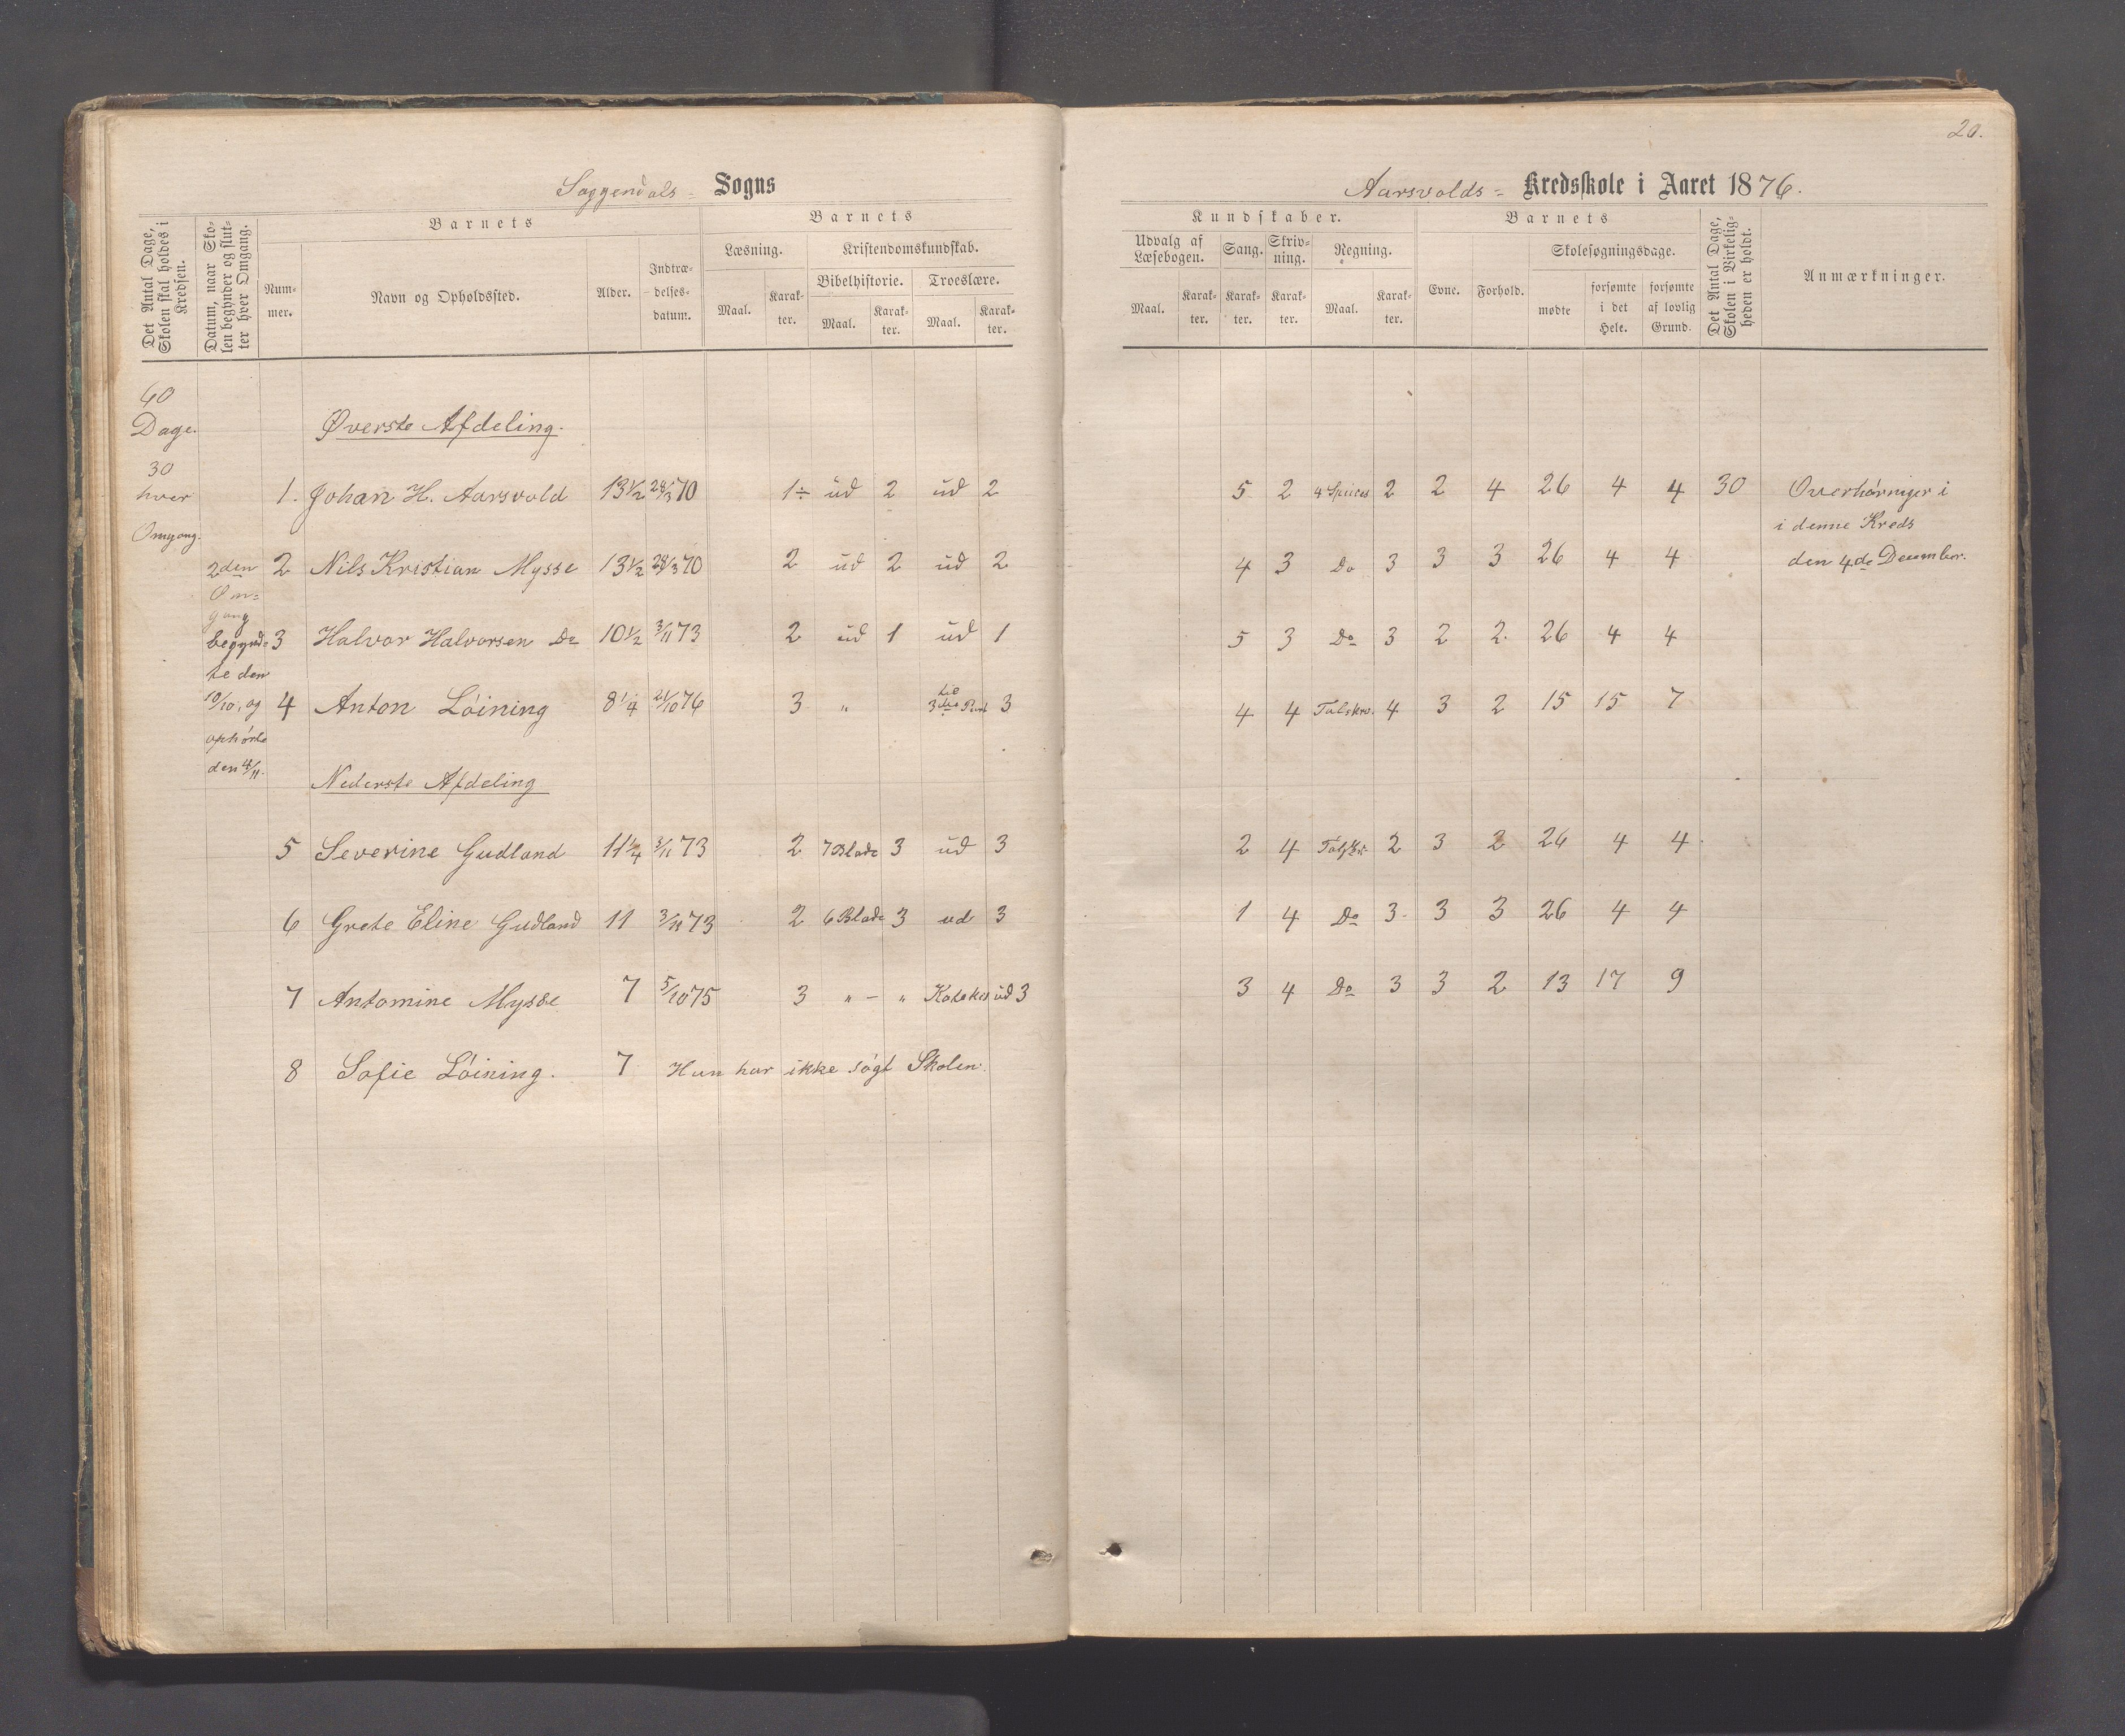 20.
Soggendals- Sogns
Aarsvolds- Kredsskole i Aaret 1876.
Det Antal Dage, Skolen skal holdes i Kredsen.
Datum, naar Skolen begynder og slutter hver Omgang.
Barnets
Nummer.
Navn og Opholdssted.
Alder.
Indtrædelsesdatum.
Barnets
Læsning.
Maal.
Karakter.
Kristendomskundskab.
Bibelhistorie.
Maal.
Karakter.
Troeslære.
Maal.
Karakter.
Kundskaber.
Udvalg af Læsebogen.
Maal.
Karakter.
Sang.
Karakter.
Skrivning.
Karakter.
Regning.
Maal.
Karakter.
Barnets
Evne.
Forhold.
Skolesøgningsdage.
mødte
forsømte i det Hele.
forsømte af lovlig Grund.
Det Antal Dage, Skolen i Virkeligheden er holdt.
Anmærkninger.
60
Dage.
30
hver
Omgang.
2den
Om=
gang
begynd=
te den
10/10, og
ophørte
den 4/11.
Øverste Afdeling.
1. Johan H. Aarsvold 13½ 28/3 70 1÷ ud 2 ud 2 5 2 4 Spicies 2 2 4 26 4 4 30
2 Nils Kristian Mysse 13½ 28/3 70 2 ud 2 ud 2 4 3 Do 3 3 3 26 4 4
3 Halvor Halvorsen Do 10½ 3/11 73 2 ud 1 ud 1 5 3 Do 3 2 2. 26 4 4
4 Anton Løining 8¼ 21/10 76 3 " 3die Part 3 4 4 Talskr. 4 3 2 15 15 7
Nederste Afdeling
5 Severine Gudland 11¼ 3/11 73 2 7 Blade 3 ud 3 2 4 Talskr. 2 3 2 26 4 4
6 Grete Eline Gudland 11 3/11 73 2 6 Blade 3 ud 3 1 4 Do 3. 3 3 26 4 4
7 Antomine Mysse 7 5/10 75 3 " - " Katekis ud 3 3 4 Do 3 3 2 13 17 9
8 Sofie Løining. 7 Hun har ikke søgt Skolen.
Overhørniger i
i denne Kreds
den 4de December.